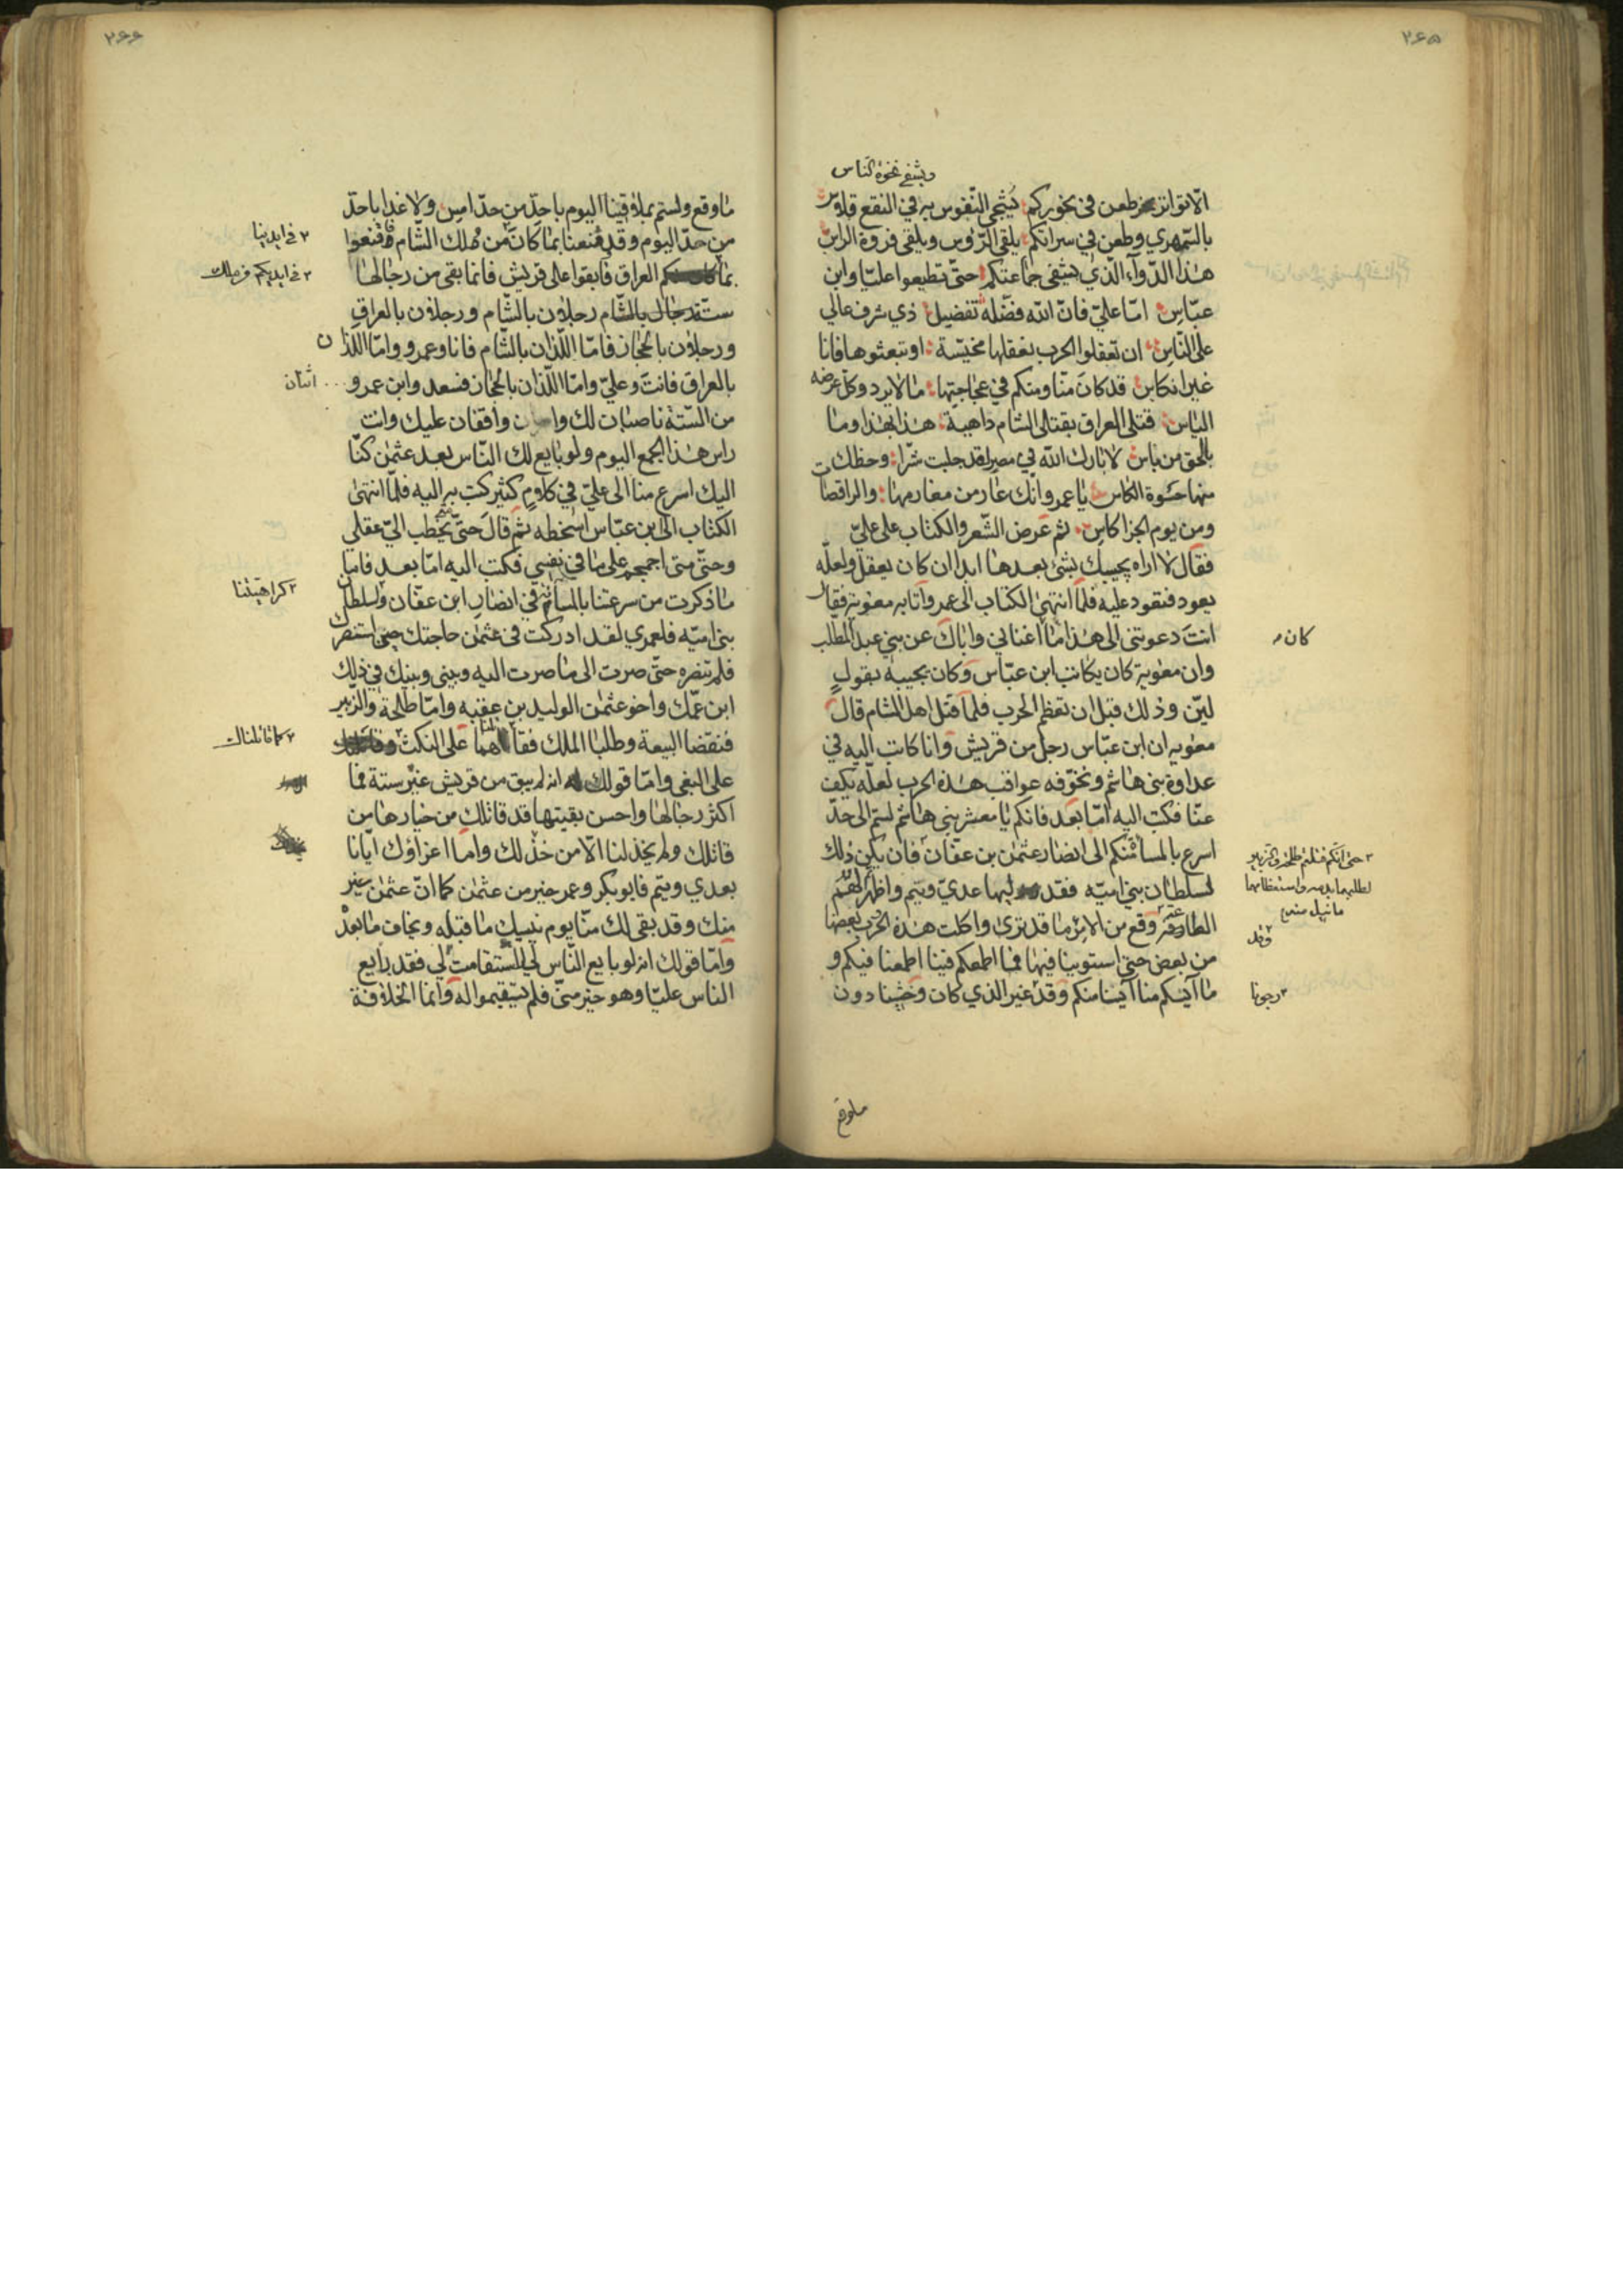 ٢٤٥
ويشفي نخوة الناس
الا تواتر طعن في نحوركم يُشجى النفوس به في النقع
بالسمهري وطعن في سراتكم يلقى الرؤس ويلقى فروة الراس
هذا الدوآء الذي يشفى جماعتكم حتى تطيعوا عليا وابن
عباس اما علي فان الله فضله تفضيل ذي شرف عالي
على الناس ان تعقلوا الحرب نعقلها مخيسة او تبعثوها فانا
غير انكاس قد كان منا ومنكم في عجاجتها ما لا يرد وكل عرضه
الباس قتلى العراق بقتلى الشام ذاهبة هذا بهذا وما
بالحق من باس لا بارك الله في مصر لقد جلبت شرا وحظك
منها حسوة الكاس يا عمرو انك عار من مغارمها والراقصات
ومن يوم الجزا كاس ثم عرض الشعر والكتاب على علي
فقال لا اراه يجيبك بشئ بعدها ابدا ان كان يعقل ولعله
يعود فنعود عليه فلما انتهى الكتاب الى عمرو اتا به معوية فقال
انت دعوتني الى هذا ما اغناني واياك عن بني عبد المطلب
كان
وان معوية كان يكاتب ابن عباس وكان يجيبه بقول
لين وذلك قبل ان تعظم الحرب فلما قتل اهل الشام قال
معويه ان ابن عباس رجل من قريش وانا كاتب اليه في
عداوة بني هاشم ونخوفه عواقب هذه الحرب لعله يكف
عنا فكتب اليه اما بعد فانكم يا معشر بني هاشم لستم الى احد
اسرع بالمسائة منكم الى انصار عثمن بن عفان فان يكن ذلك
حتى انكم قتلتم طلحة والزبير
لطلبهما بدمه واستعظامهما
ما نيل منه
لسلطان بني اميه فقد وليها عدي وتيم واظهرتم لهم
الطاعة وقد وقع من الامر ما قد ترى واكلت هذه الحرب بعضنا
من بعض حتى استوينا فيها فما اطمعكم فينا اطمعنا فيكم و
ما آيسكم منا آيسنا منكم وقد غير الذي كان وخشينا دون
رجونا
ما وقع
٢٤٤
ما وقع ولستم بملاقينا اليوم باحد من حد امس ولا غدا باحد
من حد اليوم وقد قنعنا بما كان من ملك الشام فاقنعوا
في ايدينا
بما العراق فابقوا على قريش فانما بقى من رجالها
في ايديكم من ملك
ستة رجال بالشام رجلان بالشام ورجلان بالعراق
ورجلان بالحجاز فاما اللذان بالشام فانا وعمرو واما اللذان
بالعراق فانت وعلي واما اللذان بالحجاز فسعد وابن عمرو
اثنان
من الستة ناصبان لك واقفان عليك وانت
راس هذا الجمع اليوم ولو بايع لك الناس بعد عثمن كنا
اليك اسرع منا الى علي في كلام كثير كتب به اليه فلما انتهى
الكتاب الى ابن عباس اسخطه ثم قال حتى متى يخطب الي عقلي
وحتى متى اجمجم على ما في نفسي فكتب اليه اما بعد فاما
ما ذكرت من سرعتنا بالمسائة في انصار ابن عفان وسلطان
كراهيتنا
بني اميه فلعمري لقد ادركت في عثمن حاجتك حين استنصرك
فلم تنصره حتى صرت الى ما صرت اليه وبيني وبينك في ذلك
ابن عمك واخو عثمن الوليد بن عقبه واما طلحة والزبير
فنقضا البيعة وطلبا الملك فقاتلناهما على النكث
كما قاتلناك
على البغى واما قولك انه لم يبق من قريش غير ستة فما
اكثر رجالها واحسن بقيتها قد قاتلك من خيارها من
قاتلك ولم يخذلنا الا من خذلك واما اغراؤك ايانا
بعدي وتيم فابو بكر وعمر خير من عثمن كما ان عثمن خير
منك وقد بقى لك منا يوم ينسيك ما قبله ويخاف ما بعده
واما قولك انه لو بايع الناس لي لاستقامت لي فقد بايع
الناس عليا وهو خير مني فلم يستقيموا له وانما الخلافة